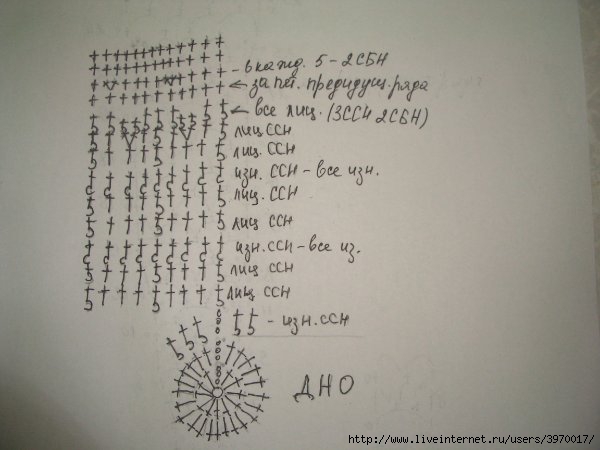 в кажд. 5 - 2СБН
за пет. предидущ. ряда
все лиц. (3ССН 2СБН)
лиц ССН
лиц. ССН
изн. ССН - все изн.
лиц. ССН
лиц ССН
изн. ССН - все из.
лиц ССН
лиц ССН
- изн. ССН
ДНО
http://www.liveinternet.ru/users/3970017/